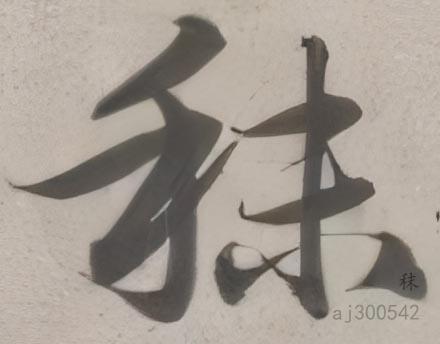 秣
秣
aj300542